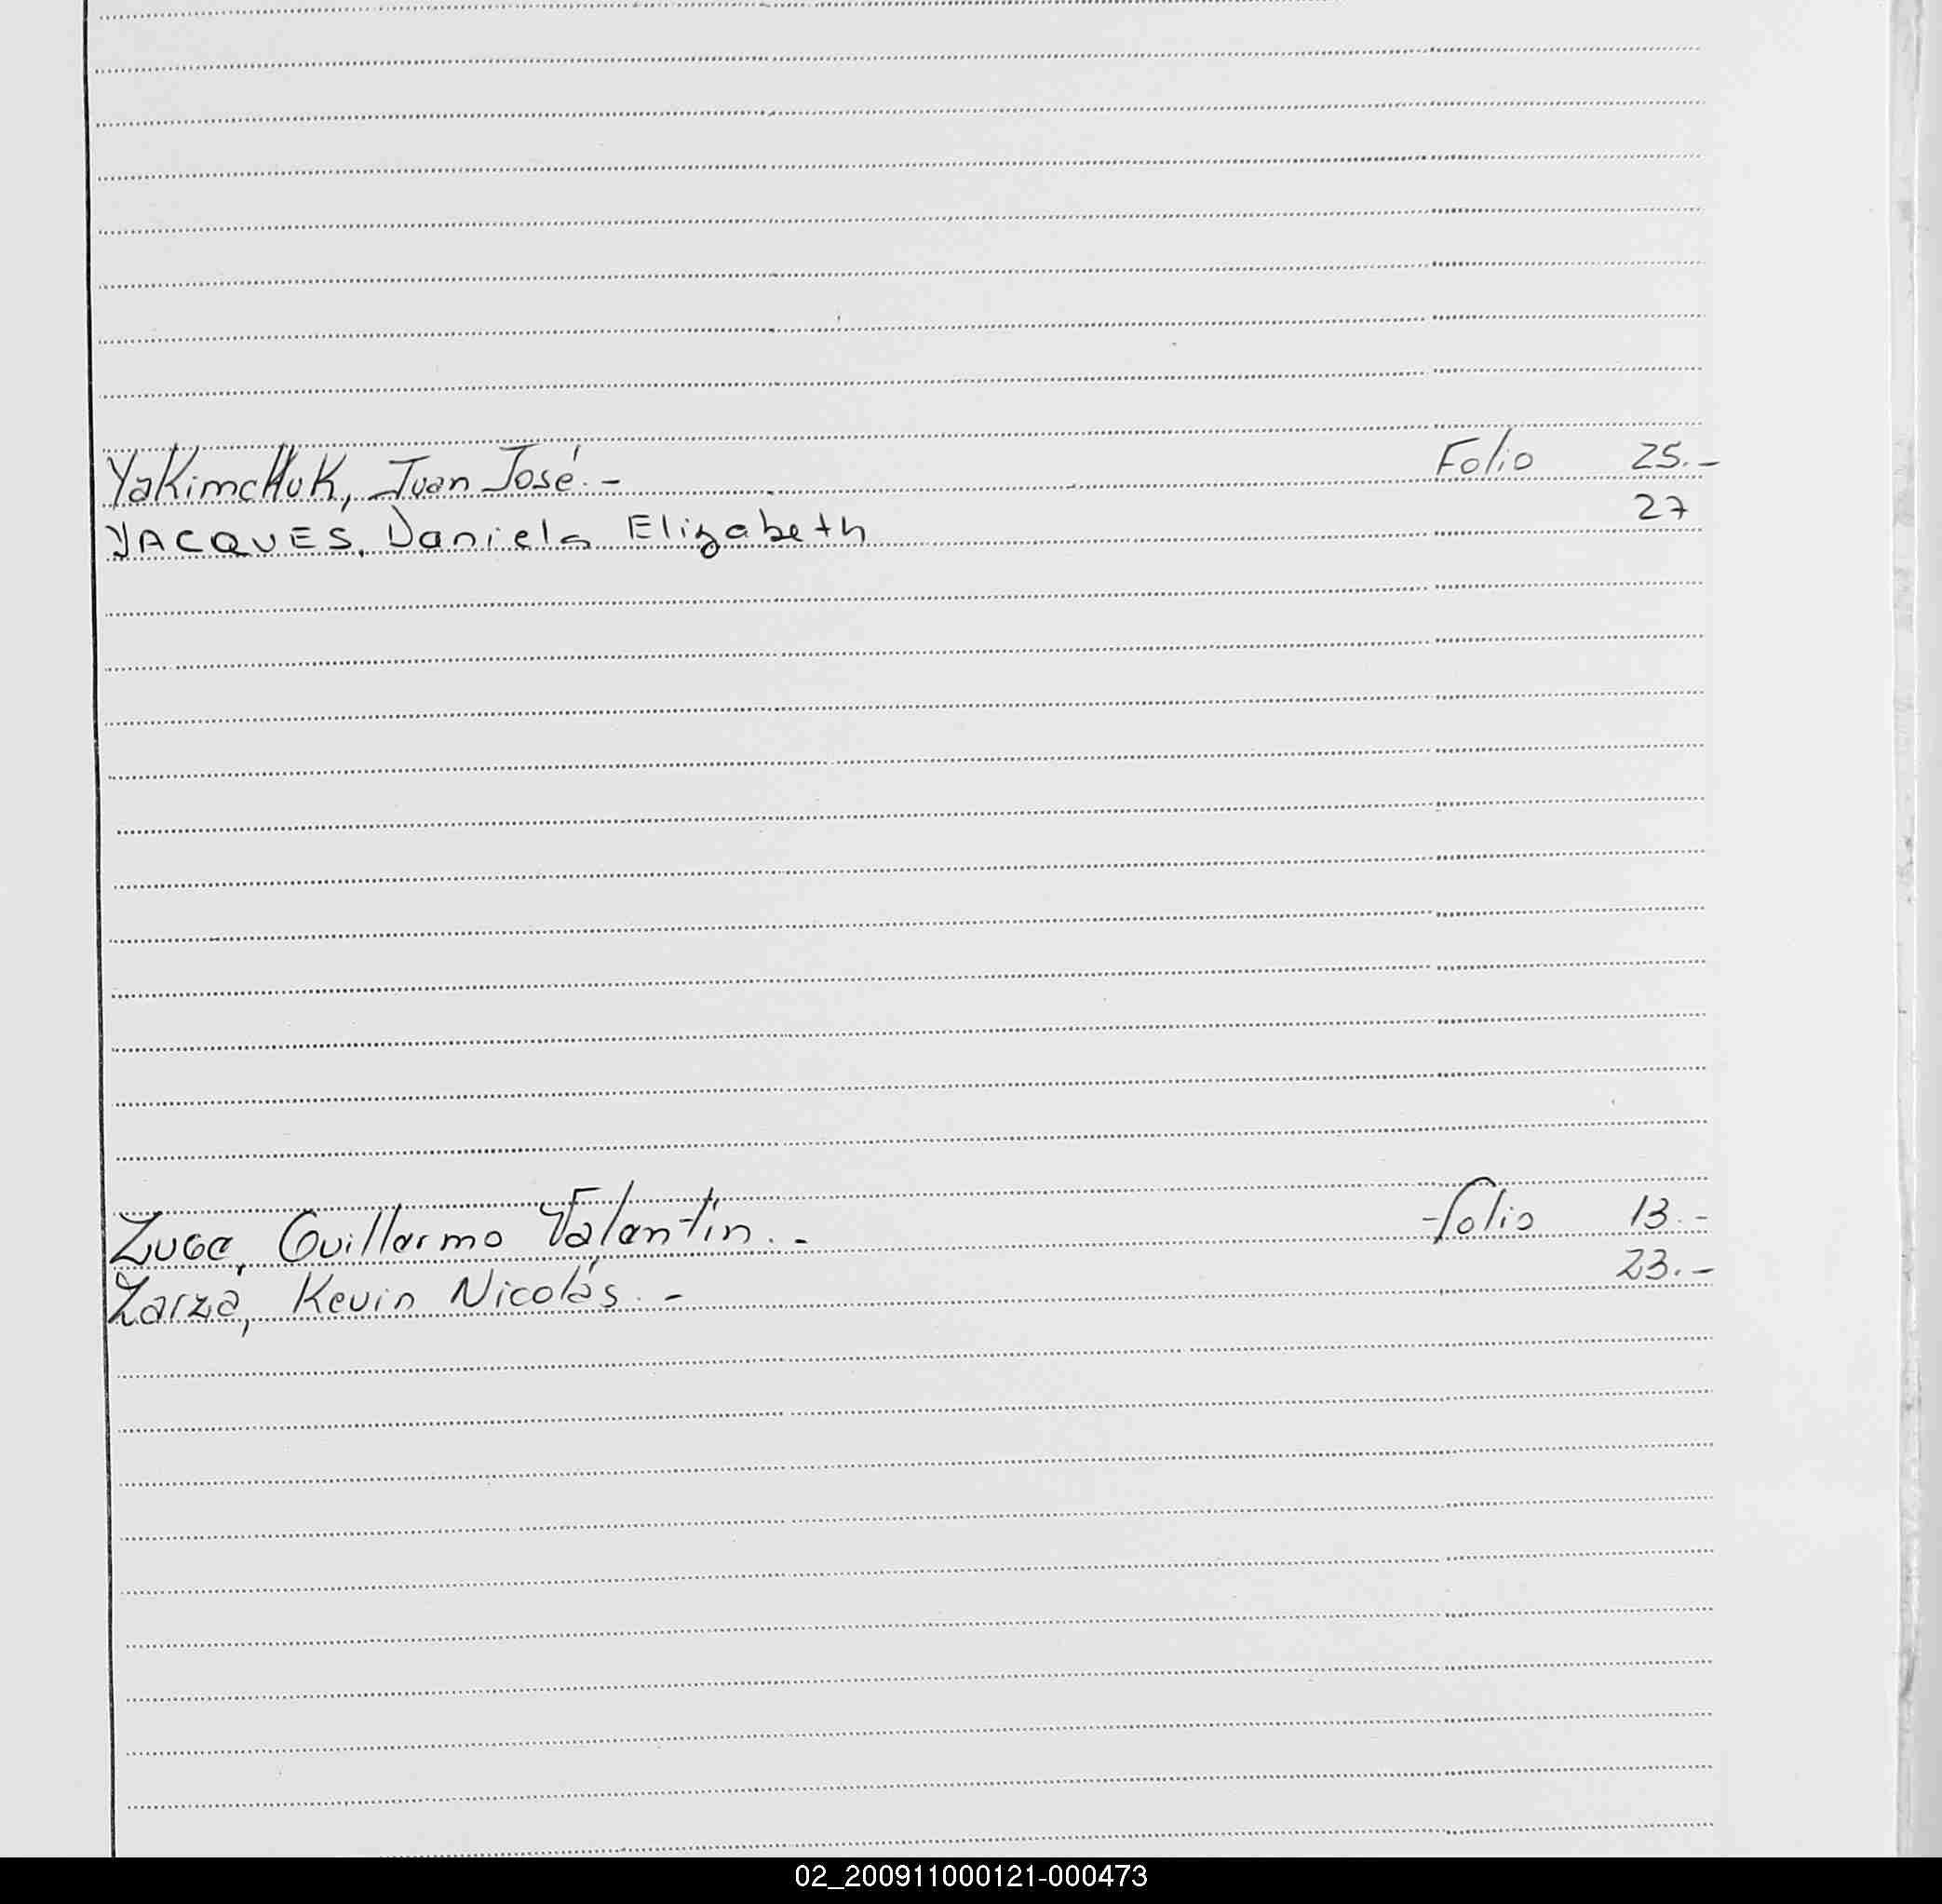 YakimcHuk, Juan José.- Folio 25.-
YACQUES, Daniela Elizabeth 27
Guillermo Valentin.- folio 13.-
Zarza, Kevin Nicolás.- 23.-
02_200911000121-000473